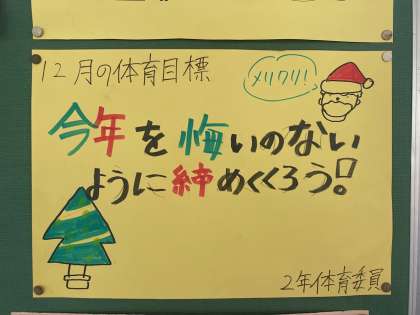 12月の体育目標
メリクリ!
今年を悔いのない
ように締めくくろう!
2年体育委員